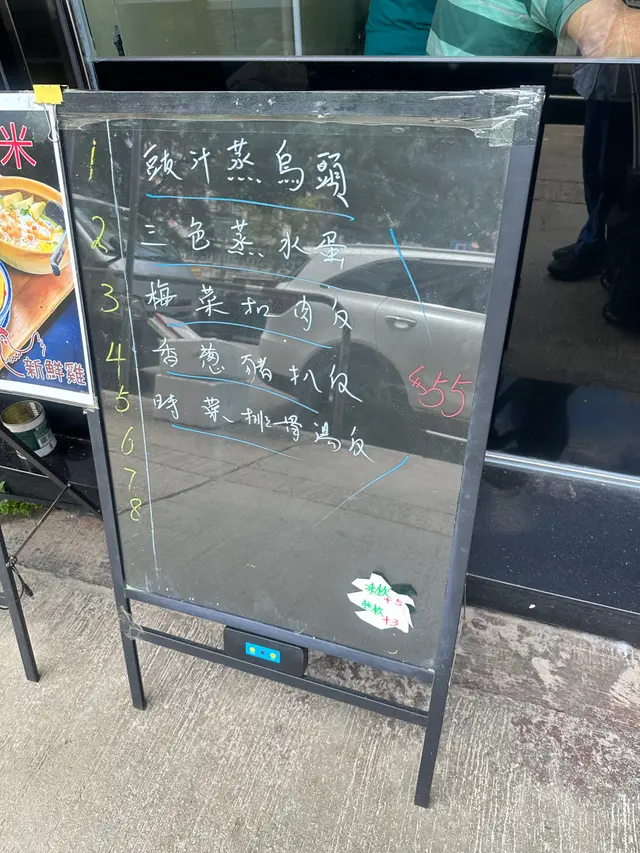 米
新鮮雞
1 豉汁蒸烏頭
2 三色蒸水蛋
3 梅菜扣肉反
4 香葱豬扒反
5 時菜排骨湯反
6
7
8
$55
凍飲+5
熱飲+3